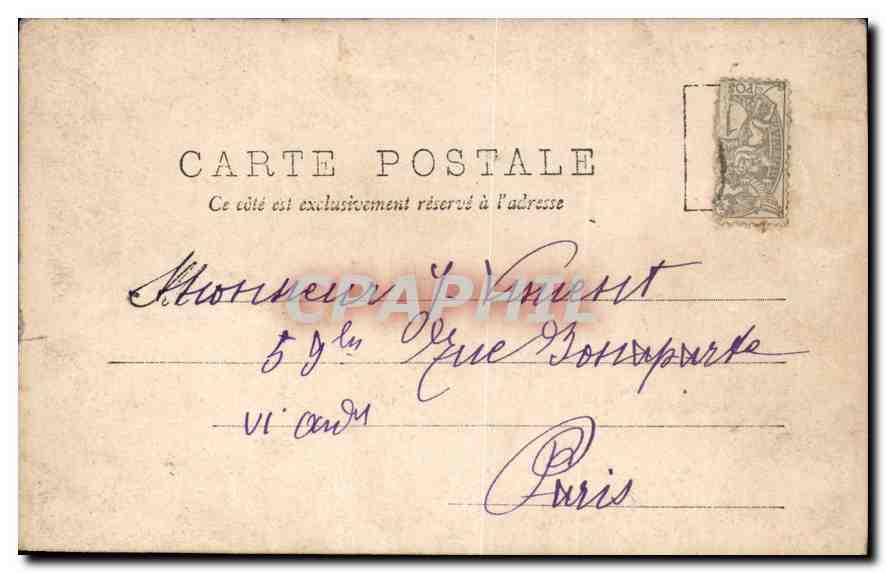 CARTE POSTALE
Ce côté est exclusivement réservé à l'adresse
Monsieur Vincent
59 Rue Bonaparte
VI
Paris
CPAPHIL